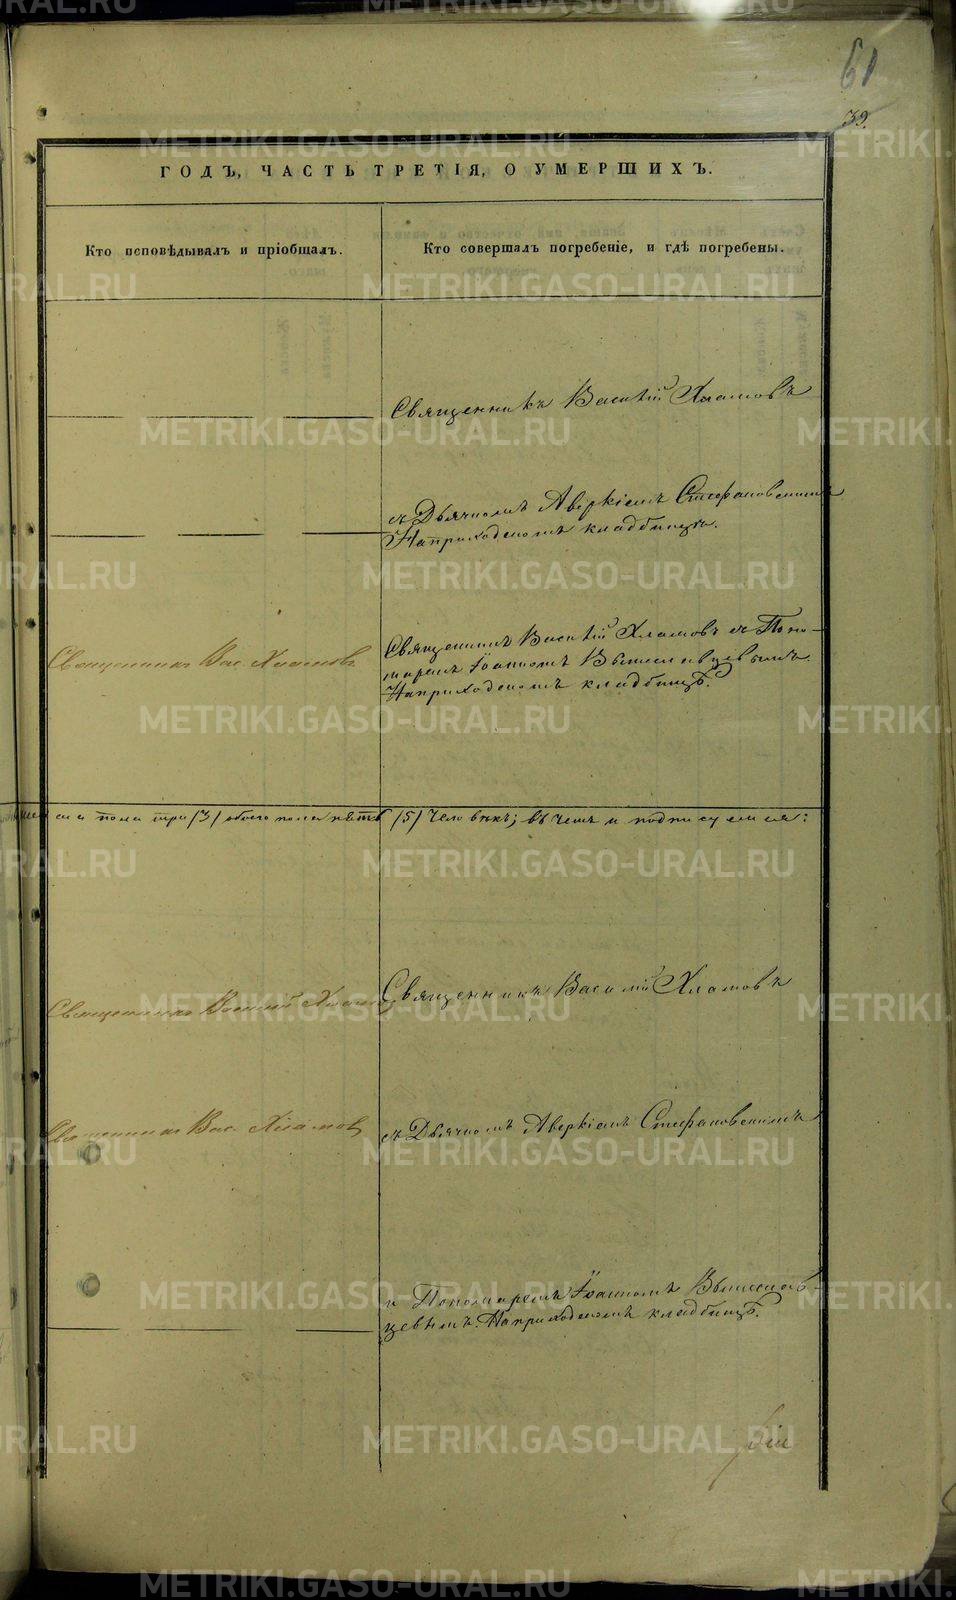 61
39.
ГОДЪ, ЧАСТЬ ТРЕТІЯ, О УМЕРШИХЪ.
Кто исповѣдывалъ и пріобщалъ.
Кто совершалъ погребеніе, и гдѣ погребены.
Священникъ Василій Хламовъ
съ Дьячкомъ Аверкіемъ Стефановскимъ
На приходскомъ кладбищѣ.
Священникъ Вас. Хламовъ
Священникъ Василій Хламовъ съ Поно-
маремъ Іоанномъ Вышеславцевымъ.
На приходскомъ кладбищѣ.
пола три (3) обоего пола пять (5) человѣкъ; въ чемъ и подписуемся:
Священникъ Василій Хламов
Священникъ Василій Хламовъ
Священникъ Вас. Хламов
съ Дьячкомъ Аверкіемъ Стефановскимъ
и Пономаремъ Іоанномъ Вышеслав-
цевымъ. На приходскомъ кладбищѣ.
METRIKI.GASO-URAL.RU